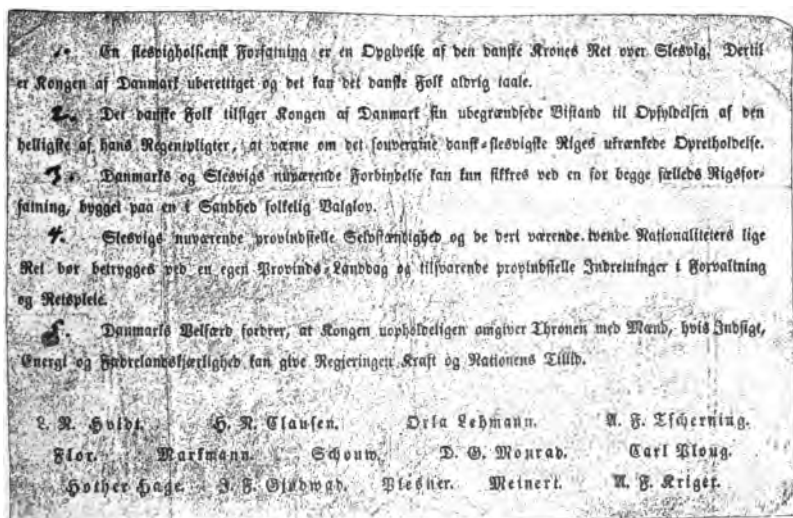 1. En slesvigholsiensk Forfatning er en Opgivelse af den danske Krones Ret over Slesvig. Dertil
er Kongen af Danmark uberettiget og det kan det danske Folk aldrig taale.
2. Det danske Folk tilsiger Kongen af Danmark sin ubegrændsede Bistand til Opfyldelsen af den
helligste af hans Regentpligter, at værne om det souveraine dansk-slesvigske Riges ukrænkede Opretholdelse.
3. Danmarks og Slesvigs nuværende Forbindelse kan kun sikkres ved en for begge fælleds Rigsfor-
fatning, bygget paa en i Sandhed folkelig Valglov.
4. Slesvigs nuværende provindsielle Selvstændighed og de deri værende tvende Nationaliteters lige
Ret bør betrygges ved en egen Provinds-Landdag og tilsvarende provindsielle Indretninger i Forvaltning
og Retspleie.
5. Danmarks Velfærd fordrer, at Kongen uopholdeligen omgiver Thronen med Mænd, hvis Indsigt,
Energi og Fædrelandskjærlighed kan give Regjeringen Kraft og Nationens Tillid.
L. N. Hvidt. H. N. Clausen. Orla Lehmann. A. F. Tscherning.
Flor. Markmann. Schouw. D. G. Monrad. Carl Ploug.
Hother Hage. J. F. Giødwad. Plesner. Meinert. A. F. Kriger.